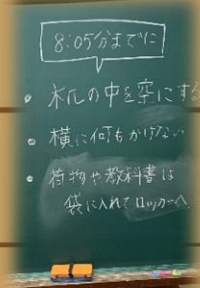 8:05分までに
・机の中を空にする
・横に何もかけない
・荷物や教科書は
袋に入れてロッカーへ